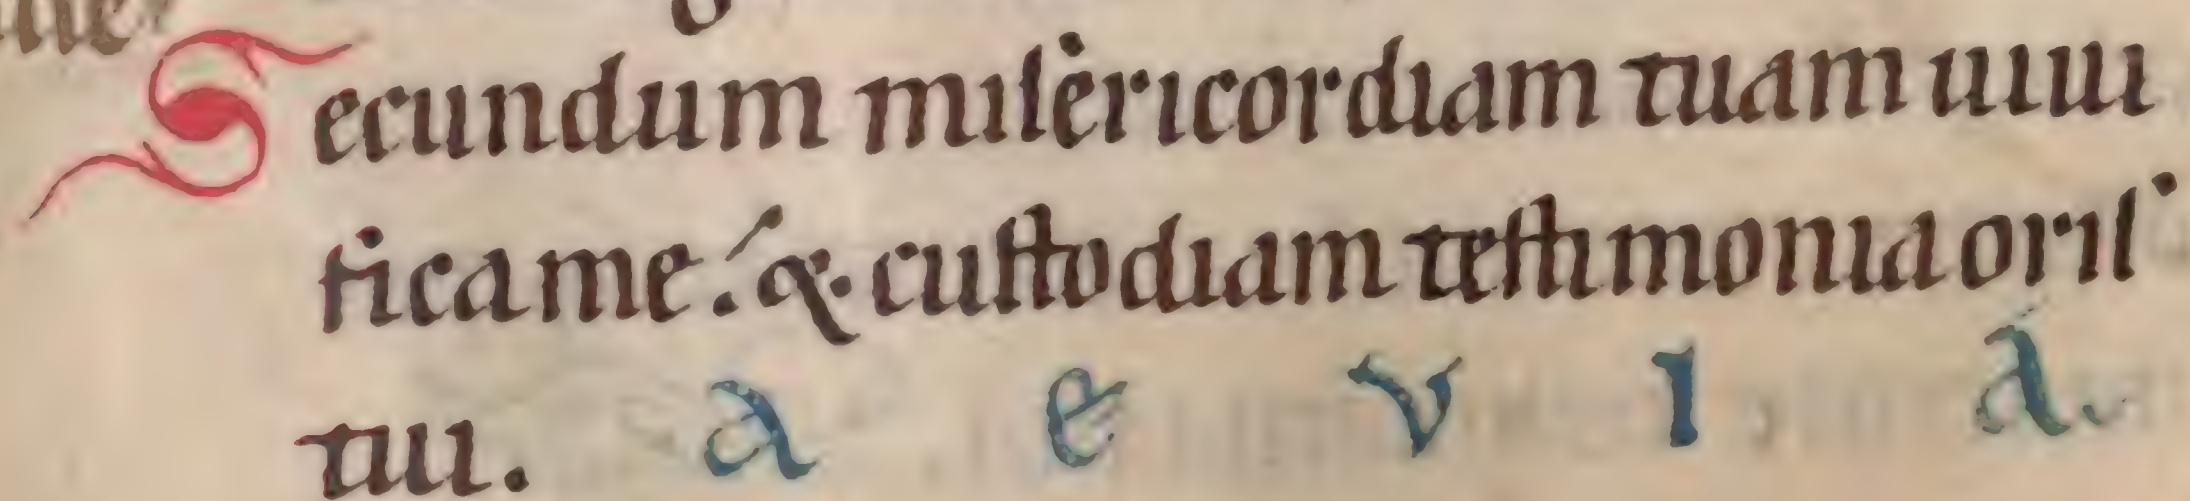 Secundum misericordiam tuam uiui
fica me: & custodiam testimonia oris
tui. a e v i a.